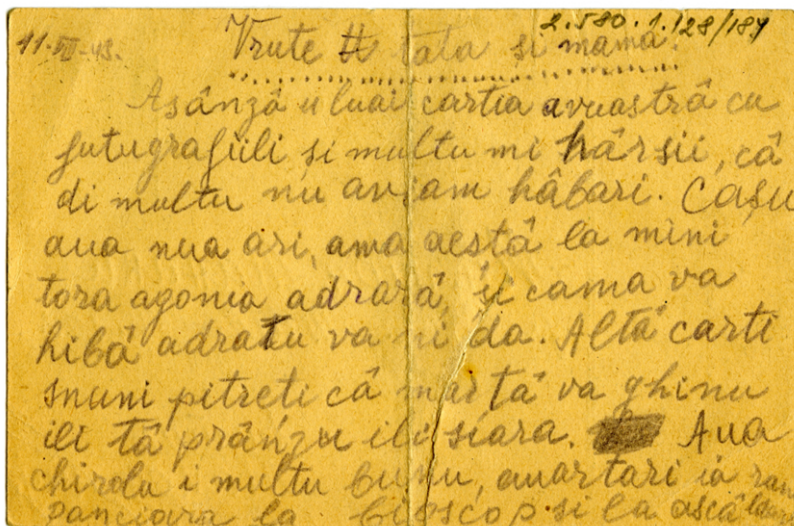 2.580.1.128/187
11-VII-43.
Vrute tata si mama!
Asânză u luai cartea avuastră cu
futugrafiili si multu mi hârsii, că
di multu nu aveam hâbari. Casu
aua nua ari, ama aestă la mini
tora agonia adrară, si cama va
hibă adratu va ni da. Altă carti
snuni pitreti că martă va ghinu
ili tă prânzu ili siara. Aua
chirolu i multu bunu, avartari ia
la bioscop si la